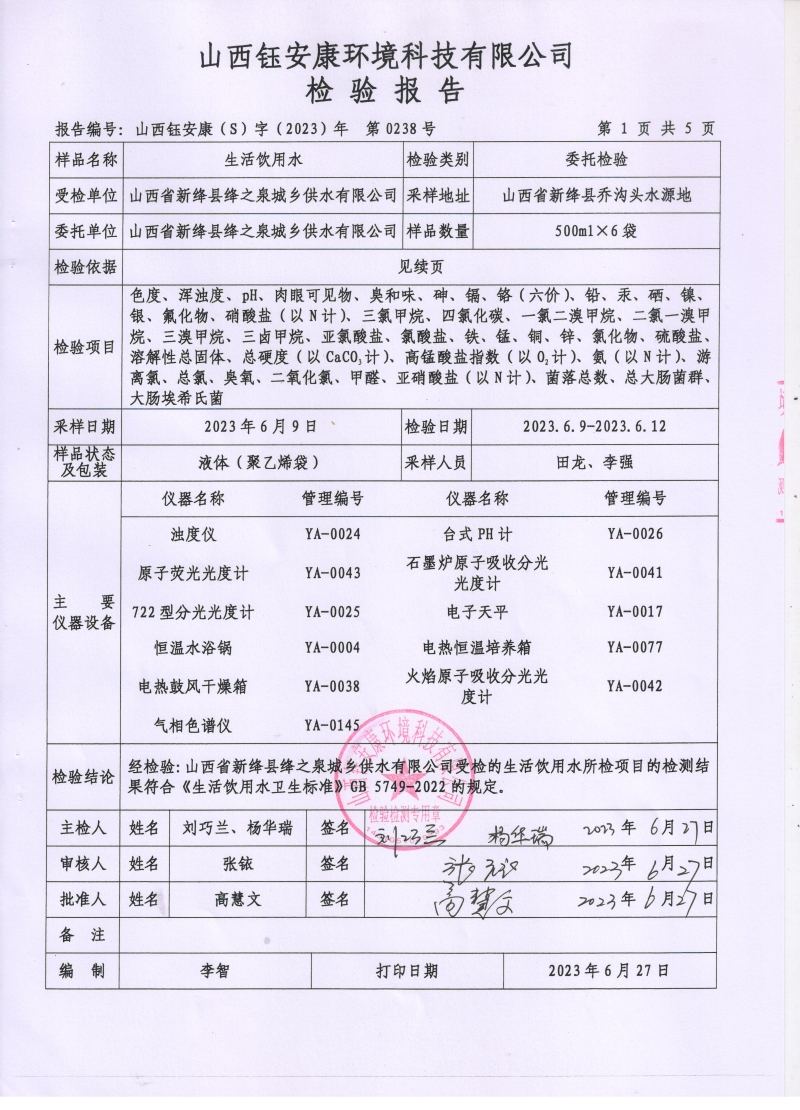 山西钰安康环境科技有限公司
检 验 报 告
报告编号：山西钰安康（S）字（2023）年 第0238号 第 1 页 共 5 页
样品名称 生活饮用水 检验类别 委托检验
受检单位 山西省新绛县绛之泉城乡供水有限公司 采样地址 山西省新绛县乔沟头水源地
委托单位 山西省新绛县绛之泉城乡供水有限公司 样品数量 500ml×6袋
检验依据 见续页
检验项目
色度、浑浊度、pH、肉眼可见物、臭和味、砷、镉、铬（六价）、铅、汞、硒、镍、
银、氟化物、硝酸盐（以N计）、三氯甲烷、四氯化碳、一氯二溴甲烷、二氯一溴甲
烷、三溴甲烷、三卤甲烷、亚氯酸盐、氯酸盐、铁、锰、铜、锌、氯化物、硫酸盐、
溶解性总固体、总硬度（以CaCO₃计）、高锰酸盐指数（以O₂计）、氨（以N计）、游
离氯、总氯、臭氧、二氧化氯、甲醛、亚硝酸盐（以N计）、菌落总数、总大肠菌群、
大肠埃希氏菌
采样日期 2023年6月9日 检验日期 2023.6.9-2023.6.12
样品状态
及包装 液体（聚乙烯袋） 采样人员 田龙、李强
主 要
仪器设备
仪器名称 管理编号 仪器名称 管理编号
浊度仪 YA-0024 台式PH计 YA-0026
原子荧光光度计 YA-0043 石墨炉原子吸收分光
光度计 YA-0041
722型分光光度计 YA-0025 电子天平 YA-0017
恒温水浴锅 YA-0004 电热恒温培养箱 YA-0077
电热鼓风干燥箱 YA-0038 火焰原子吸收分光光
度计 YA-0042
气相色谱仪 YA-0145
检验结论
经检验：山西省新绛县绛之泉城乡供水有限公司受检的生活饮用水所检项目的检测结
果符合《生活饮用水卫生标准》GB 5749-2022的规定。
山西钰安康环境科技有限公司
检验检测专用章
主检人 姓名 刘巧兰、杨华瑞 签名 刘巧兰 杨华瑞 2023年 6月27日
审核人 姓名 张铱 签名 2023年 6月27日
批准人 姓名 高慧文 签名 高慧文 2023年 6月27日
备 注
编 制 李智 打印日期 2023年6月27日